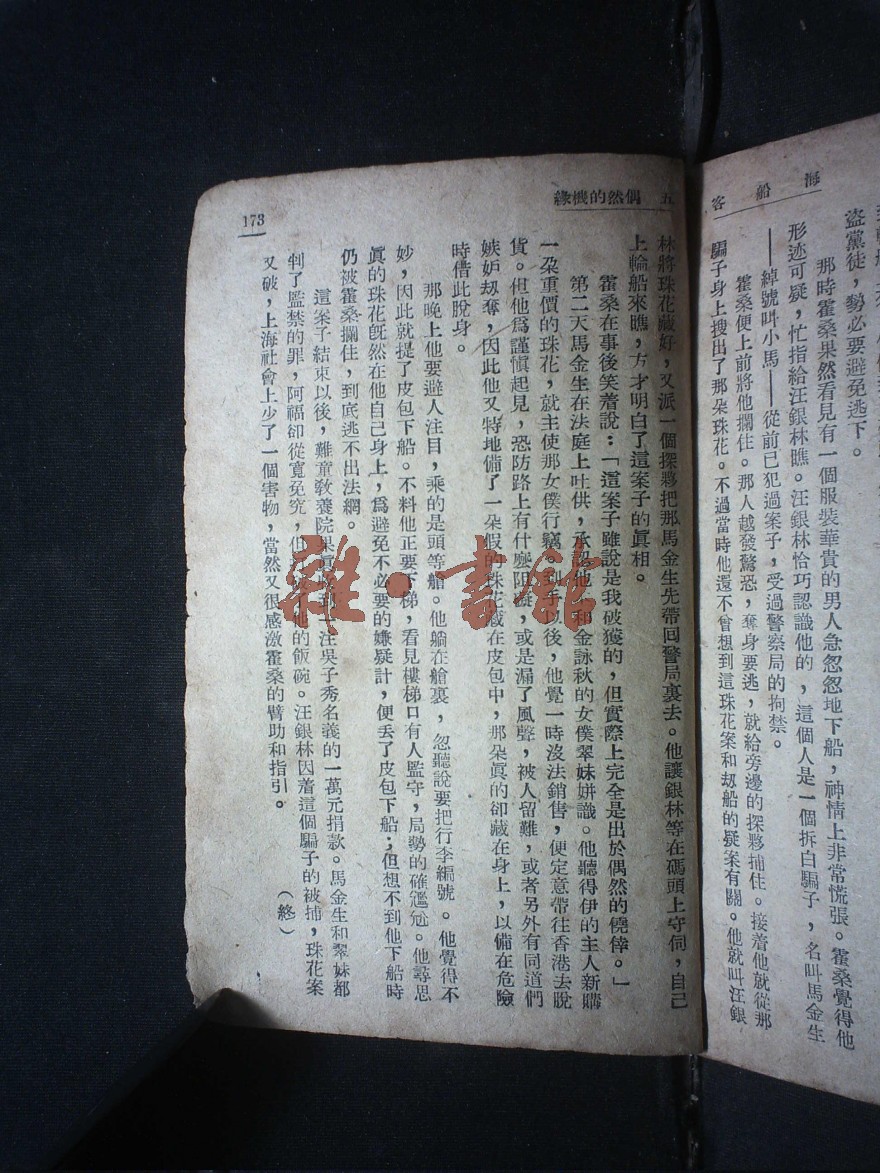 海船客
盜黨徒，勢必要避免逃下。
那時霍桑果然看見有一個服裝華貴的男人急忽忽地下船，神情上非常慌張。霍桑覺得他
形迹可疑，忙指給汪銀林瞧。汪銀林恰巧認識他的，這個人是一個拆白騙子，名叫馬金生
——綽號叫小馬——從前已犯過案子，受過警察局的拘禁。
霍桑便上前將他攔住。那人越發驚恐，奪身要逃，就給旁邊的探夥捕住。接着他就從那
騙子身上搜出了那朵珠花。不過當時他還不曾想到這珠花案和刼船的疑案有關。他就叫汪銀
五 偶然的機緣
林將珠花藏好，又派一個探夥把那馬金生先帶回警局裏去。他讓銀林等在碼頭上守伺，自己
上輪船來瞧，方才明白了這案子的眞相。
霍桑在事後笑着說：「這案子雖說是我破獲的，但實際上完全是出於偶然的僥倖。」
第二天馬金生在法庭上吐供，承認他和金詠秋的女僕翠妹姘識。他聽得伊的主人新購
一朶重價的珠花，就主使那女僕行竊。到手以後，他覺一時沒法銷售，便定意帶往香港去脫
貨。但他爲謹愼起見，恐防路上有什麽阻礙，或是漏了風聲，被人留難，或者另外有同道們
嫉妒刼奪，因此他又特地備了一朵假的珠花藏在皮包中，那朵眞的卻藏在身上，以備在危險
時借此脫身。
那晚上他要避人注目，乘的是頭等艙。他躺在艙裏，忽聽說要把行李編號。他覺得不
妙，因此就提了皮包下船。不料他正要下梯，看見樓梯口有人監守，局勢的確尷尬。他尋思
眞的珠花旣然在他自己身上，爲避免不必要的嫌疑計，便丢了皮包下船；但想不到他下船時
仍被霍桑攔住，到底逃不出法網。
這案子結束以後，難童敎養院果眞收到一注吳子秀名義的一萬元捐款。馬金生和翠妹都
判了監禁的罪，阿福卻從寬免究，但他的飯碗。汪銀林因着這個騙子的被捕，珠花案
又破，上海社會上少了一個害物，當然又很感激霍桑的臂助和指引。
（終）
173
雜·書館